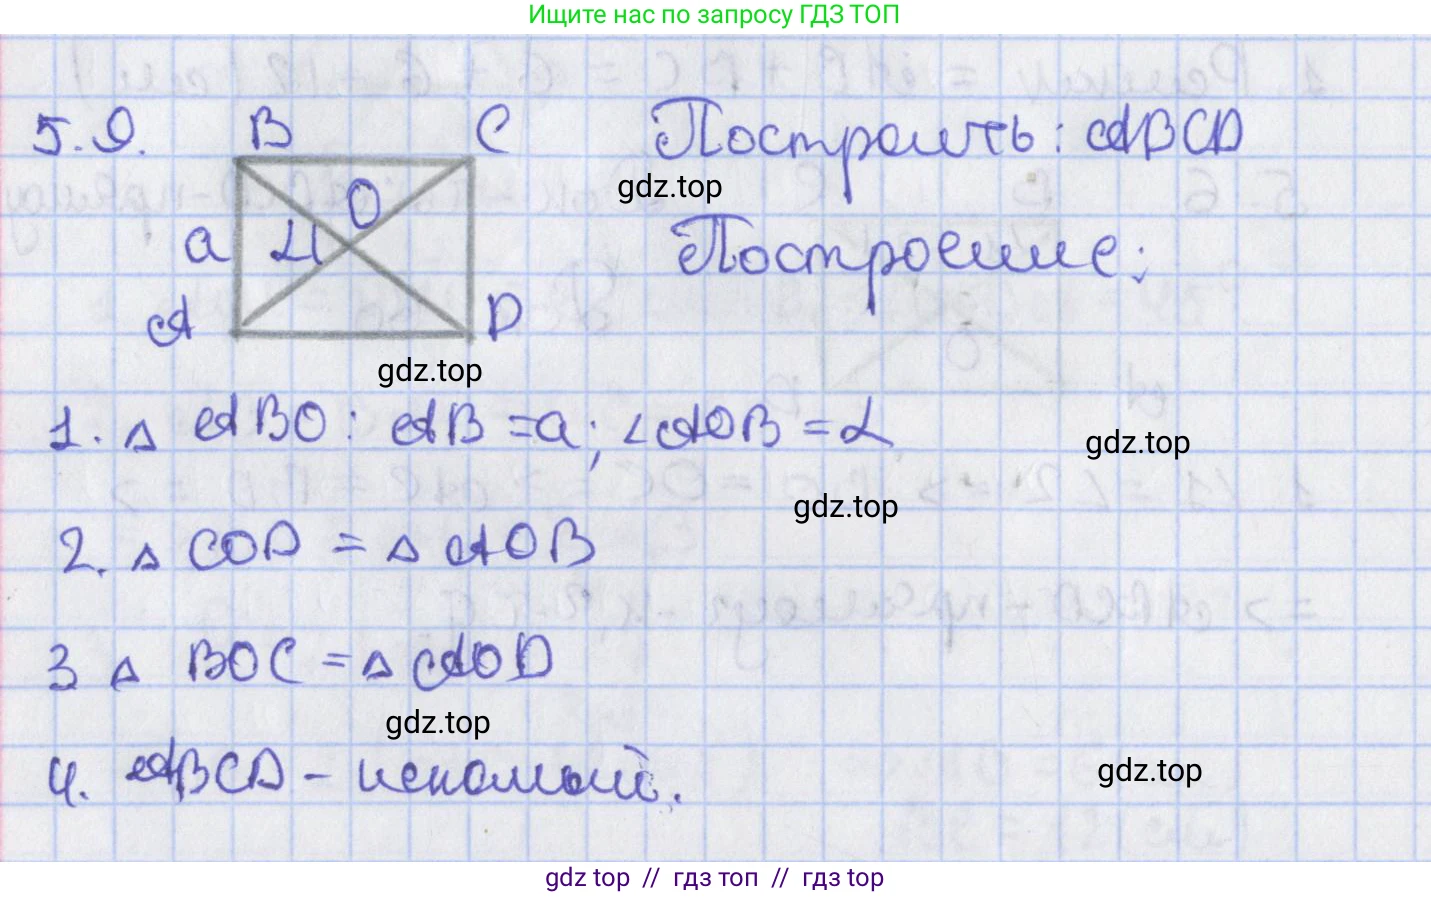 Ищите нас по запросу ГДЗ ТОП
5.9.
B C
Построить: ABCD
gdz.top
O
a α
Построение:
A D
gdz.top
1. △ ABO: AB = a; ∠AOB = α
gdz.top
gdz.top
2. △ COD = △ AOB
3 △ BOC = △ AOD
gdz.top
4. ABCD - искомый.
gdz.top
gdz top // гдз топ // гдз top